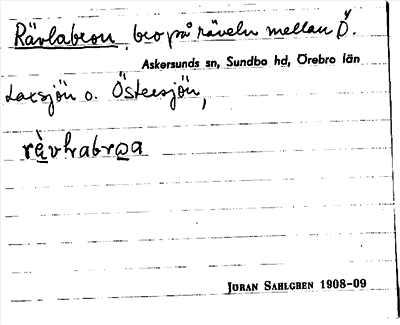 Rävlabron, bro på räveln mellan Ö.
Askersunds sn, Sundbo hd, Örebro län
Laxsjön o. Östersjön,
JÖRAN SAHLGREN 1908-09